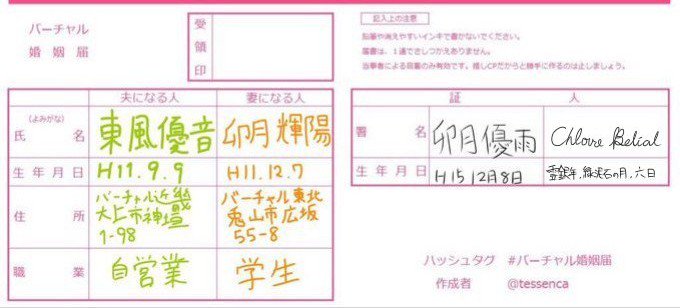 バーチャル
婚姻届
受領印
記入上の注意
鉛筆や消えやすいインキで書かないでください。
届書は、1通でさしつかえありません。
当事者による届書のみ有効です。推しCPだからと勝手に作るのは止しましょう。
夫になる人 妻になる人
(よみがな)
氏名 東風優音 卯月輝陽
生年月日 H11.9.9 H11.12.7
住所 バーチャル近畿 大上市神壇 1-98 バーチャル東北 兎山市広坂 55-8
職業 自営業 学生
証人
署名 卯月優雨 Chlowe Belial
生年月日 H15 12月8日 霊銀年, 緑光石の月, 六日
ハッシュタグ #バーチャル婚姻届
作成者 @tessenca